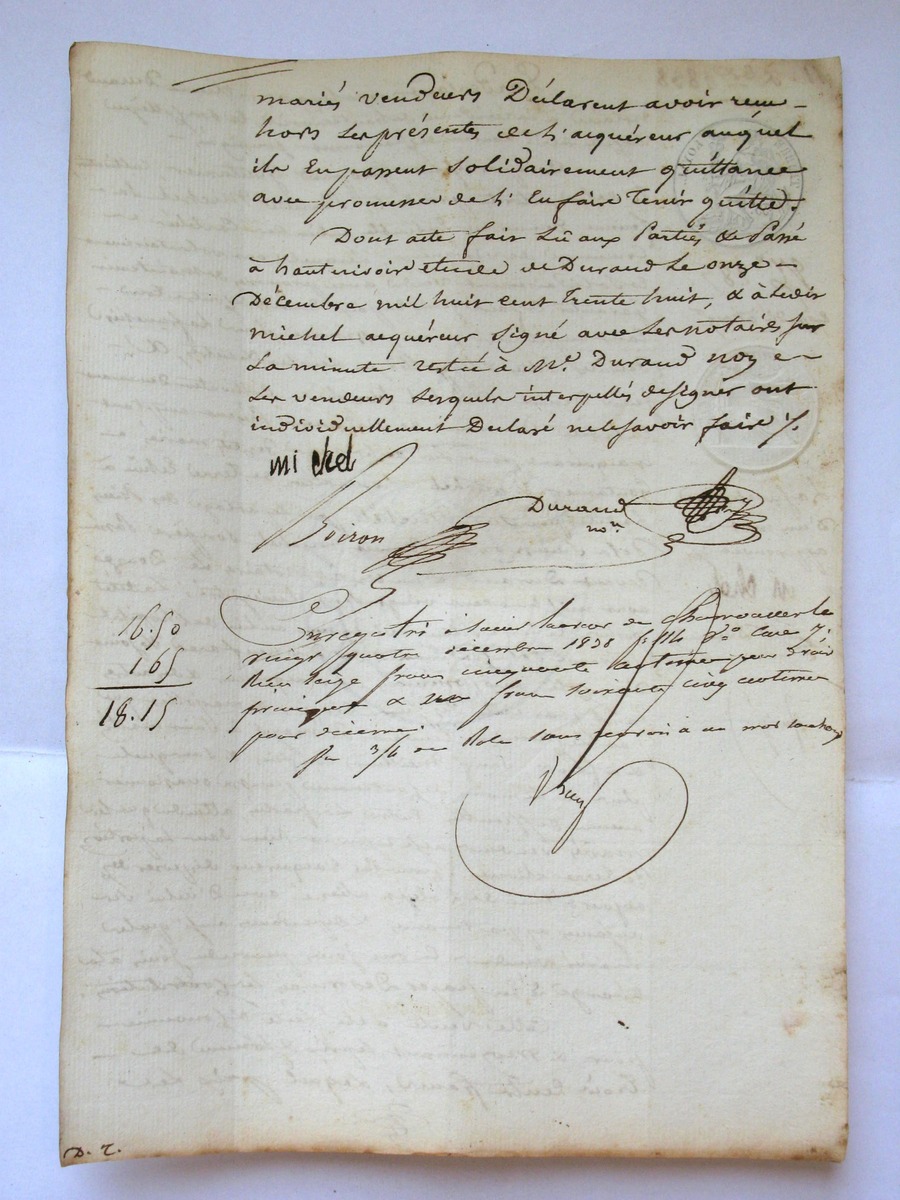 mariés vendeurs Déclarent avoir reçu
hors ses présentes de l'acquéreur auquel
ils en passent solidairement quittance
avec promesse de l'en faire tenir quitte.
Dont acte fait Lû aux Parties & Passé
à hauterivoire etude de Durand Le onze
Décembre mil huit cent trente huit, & a ledit
michel acquéreur signé avec les notaires sur
la minute restée à Me. Durand non e
les vendeurs lesquels interpellés de signer ont
individuellement Déclaré ne le savoir faire ./.
michel
Durand
Noiron
nore
16.50
1 65
18.15
Enregistré à saint
vingt quatre décembre 1838 fo 114 Vo Case 7.
seize francs cinquante centimes pour droit
principal & un franc soixante cinq centimes
pour décime.
D. T.